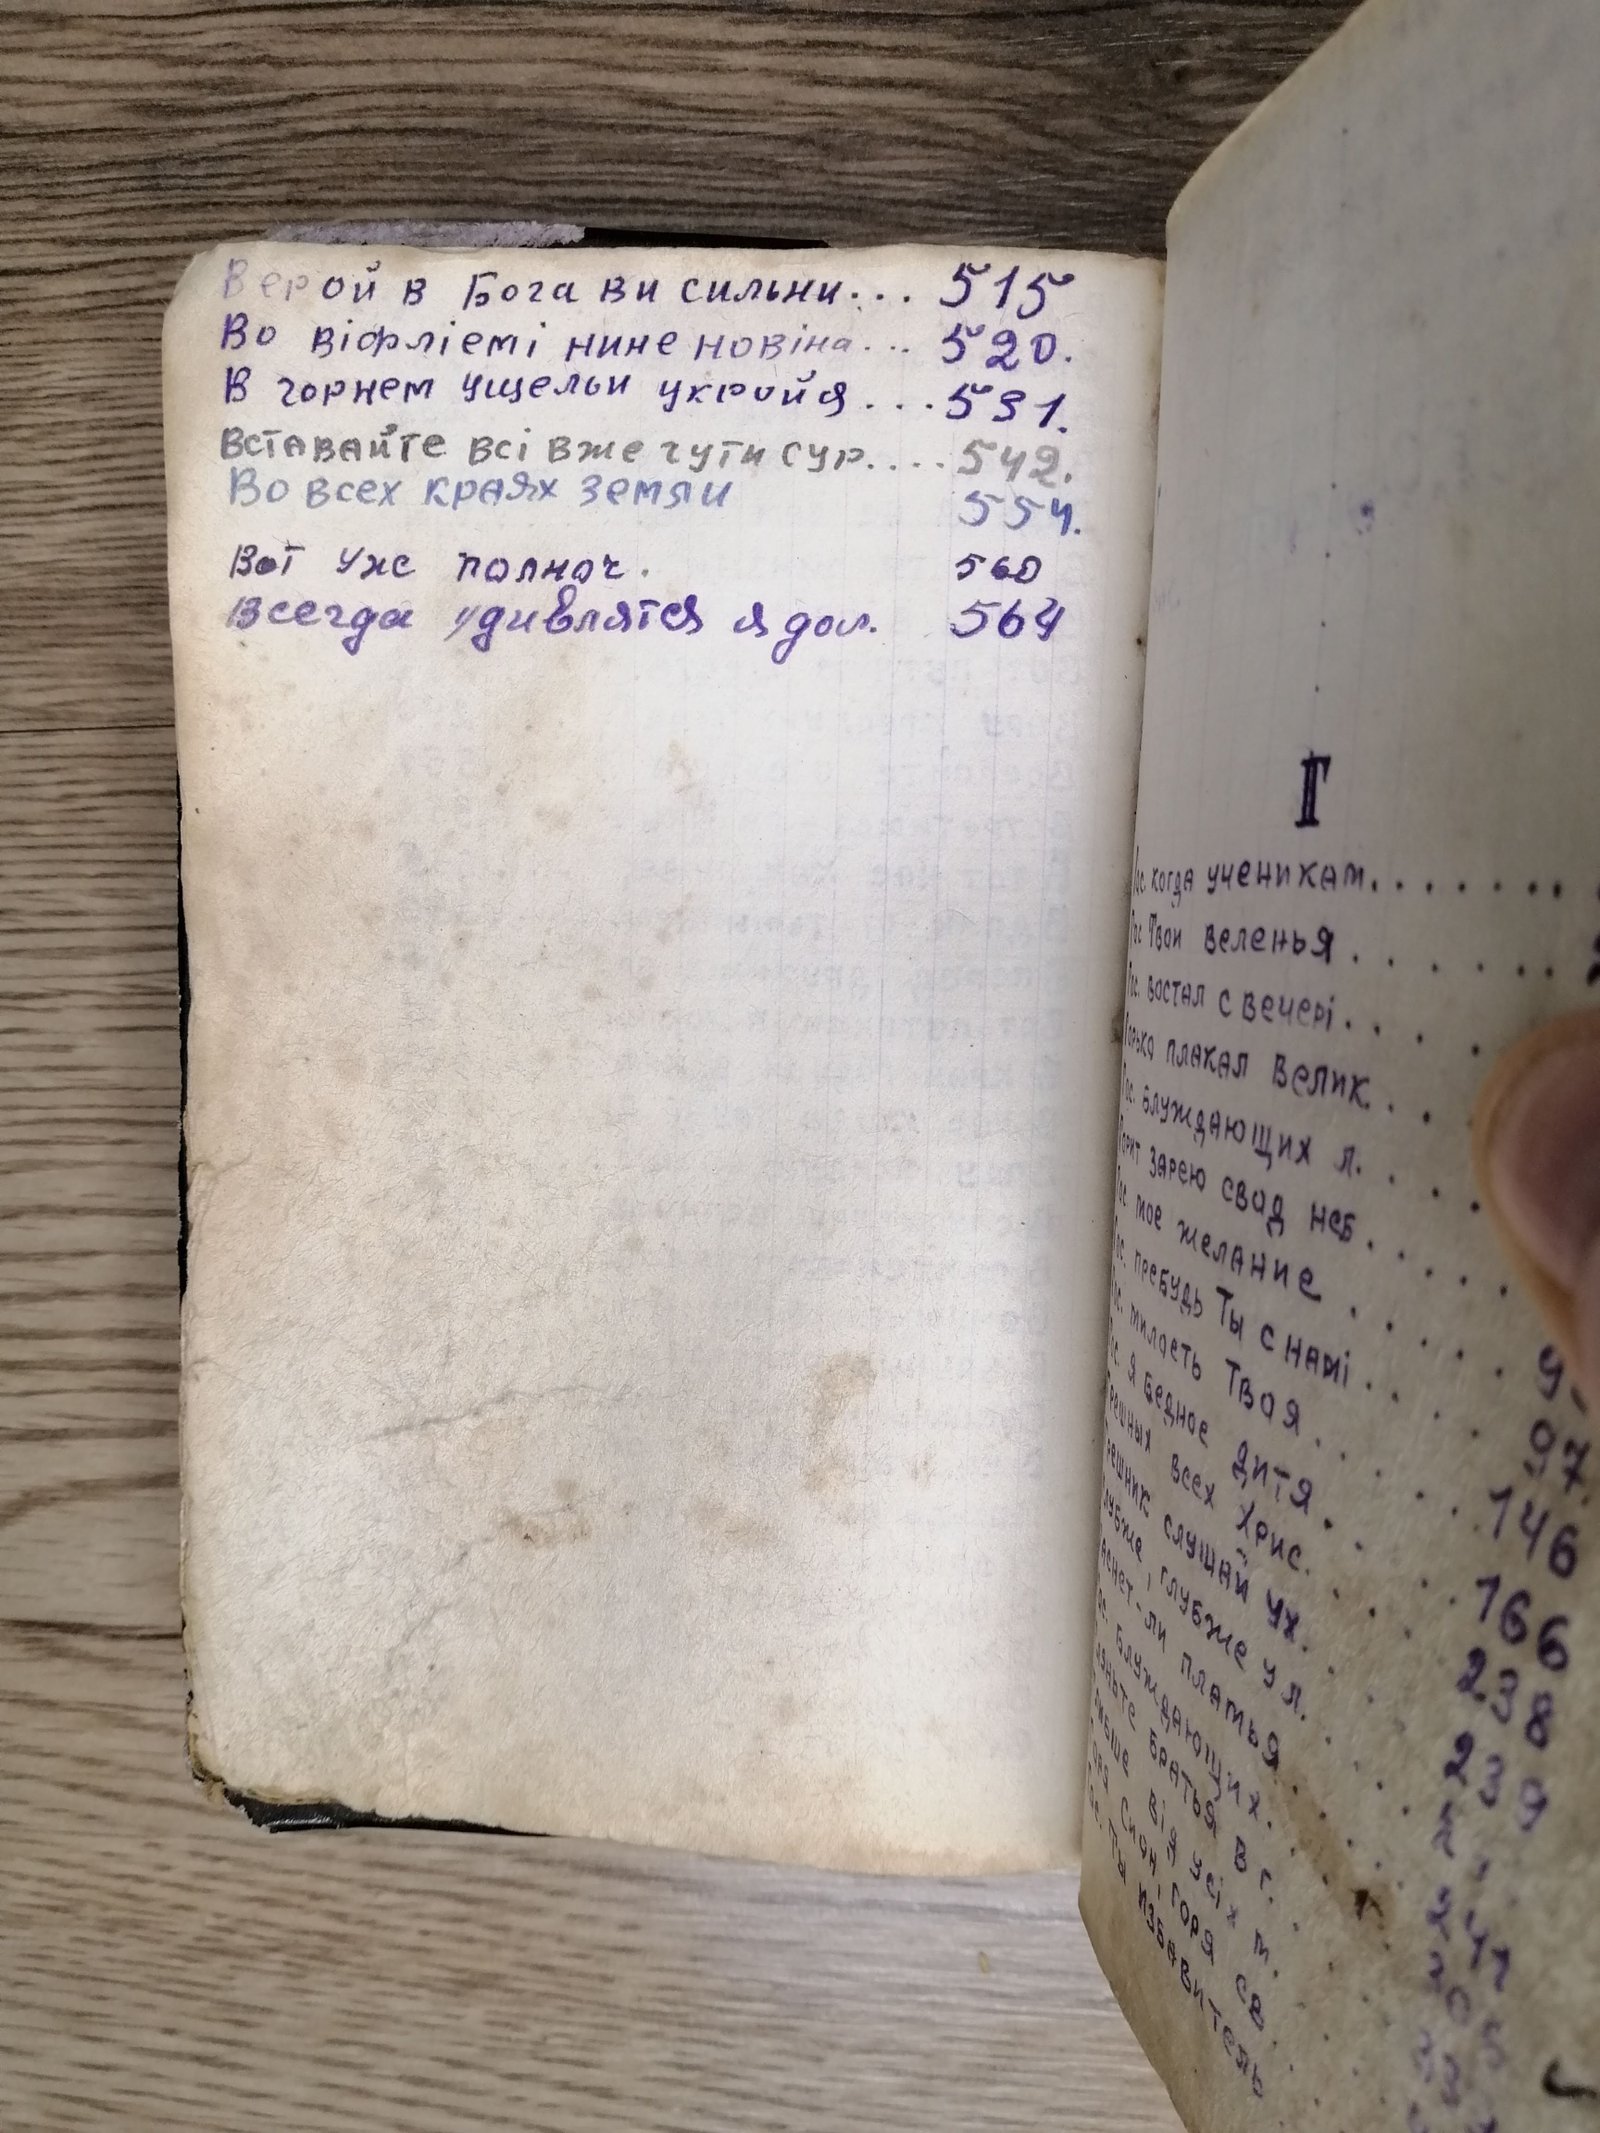 Верой в Бога ви сильни... 515
Во віфліемі нине новіна... 520.
В горнем ущельи укройя... 531.
Вставайте всі вже чути сур.... 542.
Во всех краях земли 554.
Вот уже полноч. 560
Всегда удивлятся я дол. 564
Г
Гос. когда ученикам.......
Гос Твои веленья......
Гос. востал с вечері....
Горько плакал велик...
Гос. блуждающих л....
Горит зарею свод неб....
Гос. мое желание....
Гос. пребудь Ты с намі...
Гос. милость Твоя.... 97.
Гос. Я бедное дитя... 146
Грешных всех Хрис.... 166
Грешник слушай ух... 238
Глубже, глубже у л... 239
Гаснет-ли пламья...
Гос. блуждающих...
Гляньте братья в г.
від усіх м.
Гора Сион, гора св.
Гос. Ты избавитель